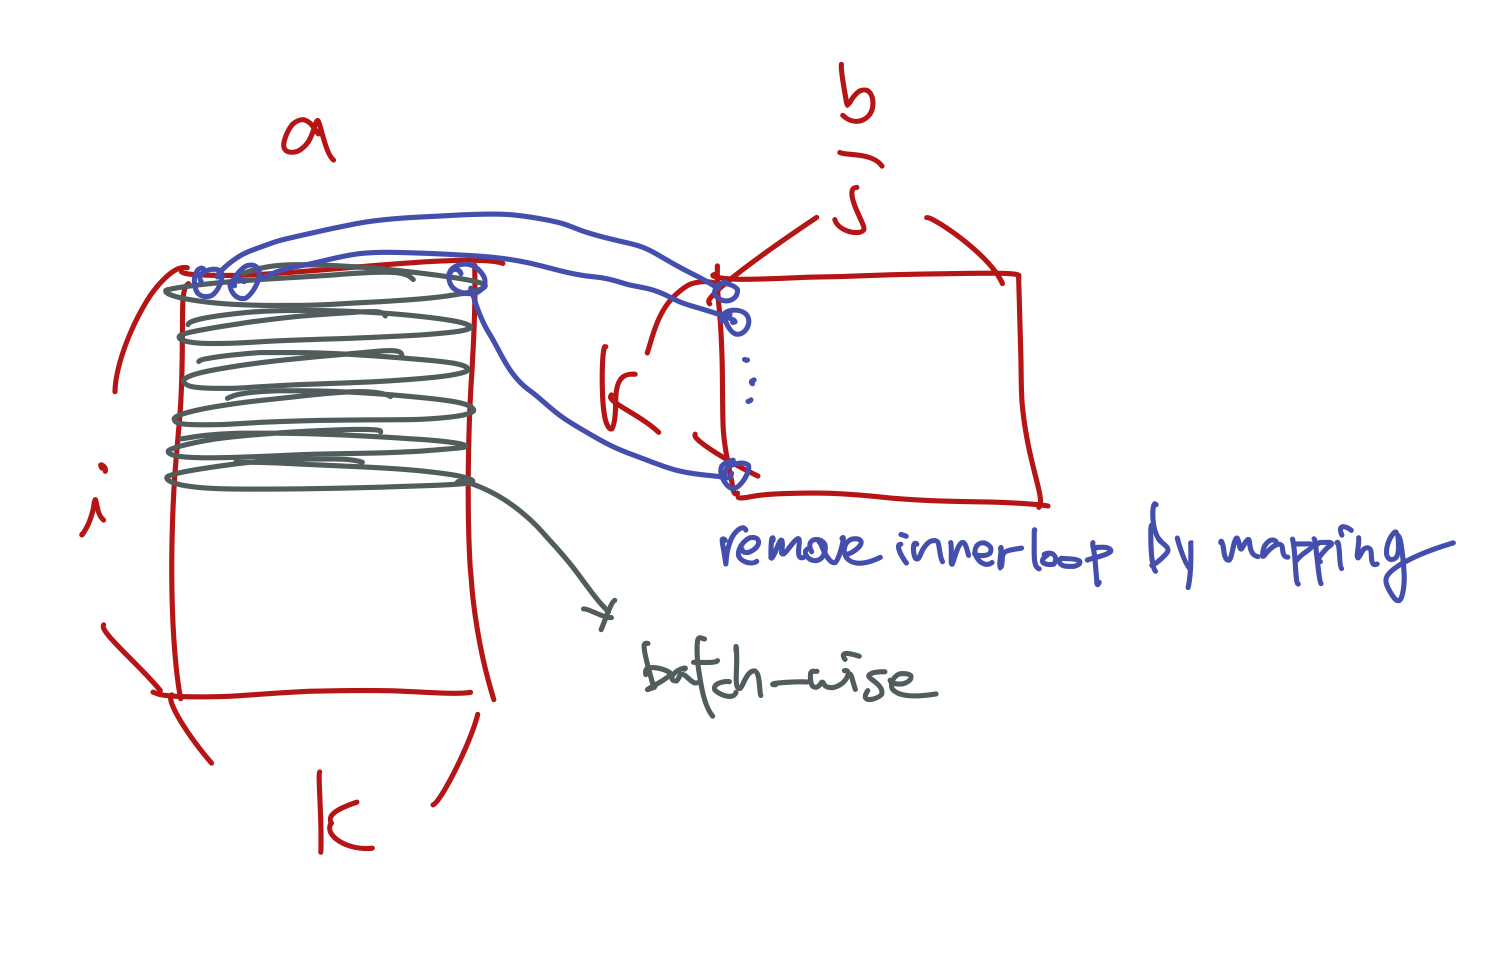 a
b
j
k
i
remove innerloop by mapping
batch-wise
k